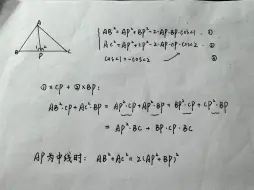 A
B
P
C
AB²=AP²+BP²-2·AP·BP·cos∠1 ①
AC²=AP²+CP²-2·AP·CP·cos∠2 ②
cos∠1=-cos∠2
①×CP+②×BP:
AB²·CP+AC²·BP=AP²·CP+AP²·BP+BP²·CP+CP²·BP
=AP²·BC+BP·CP·BC
AP为中线时: AB²+AC²=2(AP²+BP²)